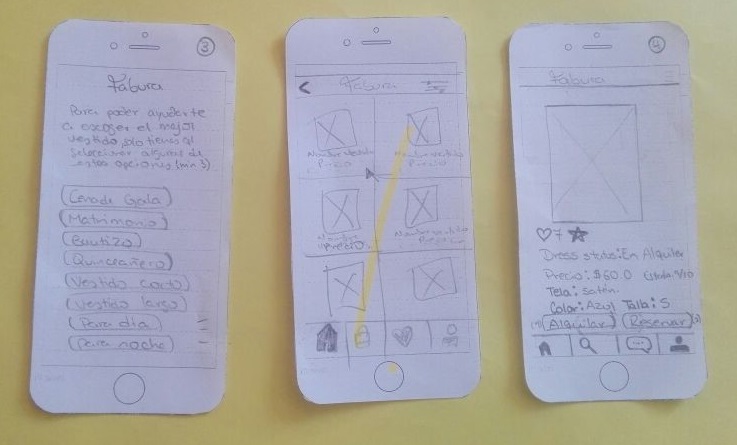 3
Fabura
Para poder ayudarte
a escoger el mejor
vestido, solo tienes q'
seleccionar algunas de
estas opciones (mín 3)
Cena de Gala
Matrimonio
Bautizo
Quinceañero
Vestido corto
Vestido largo
Para día
Para noche
Fabura
Nombre Vestido
Precio
Nombre Vestido
Precio
Nombre
Precio
Nombre Vestido
Precio
4
Fabura
7
Dress status: En Alquiler
Precio: $60.0 Estado: 9/10
Tela: Satén
Color: Azul Talla: S
Alquilar Reservar